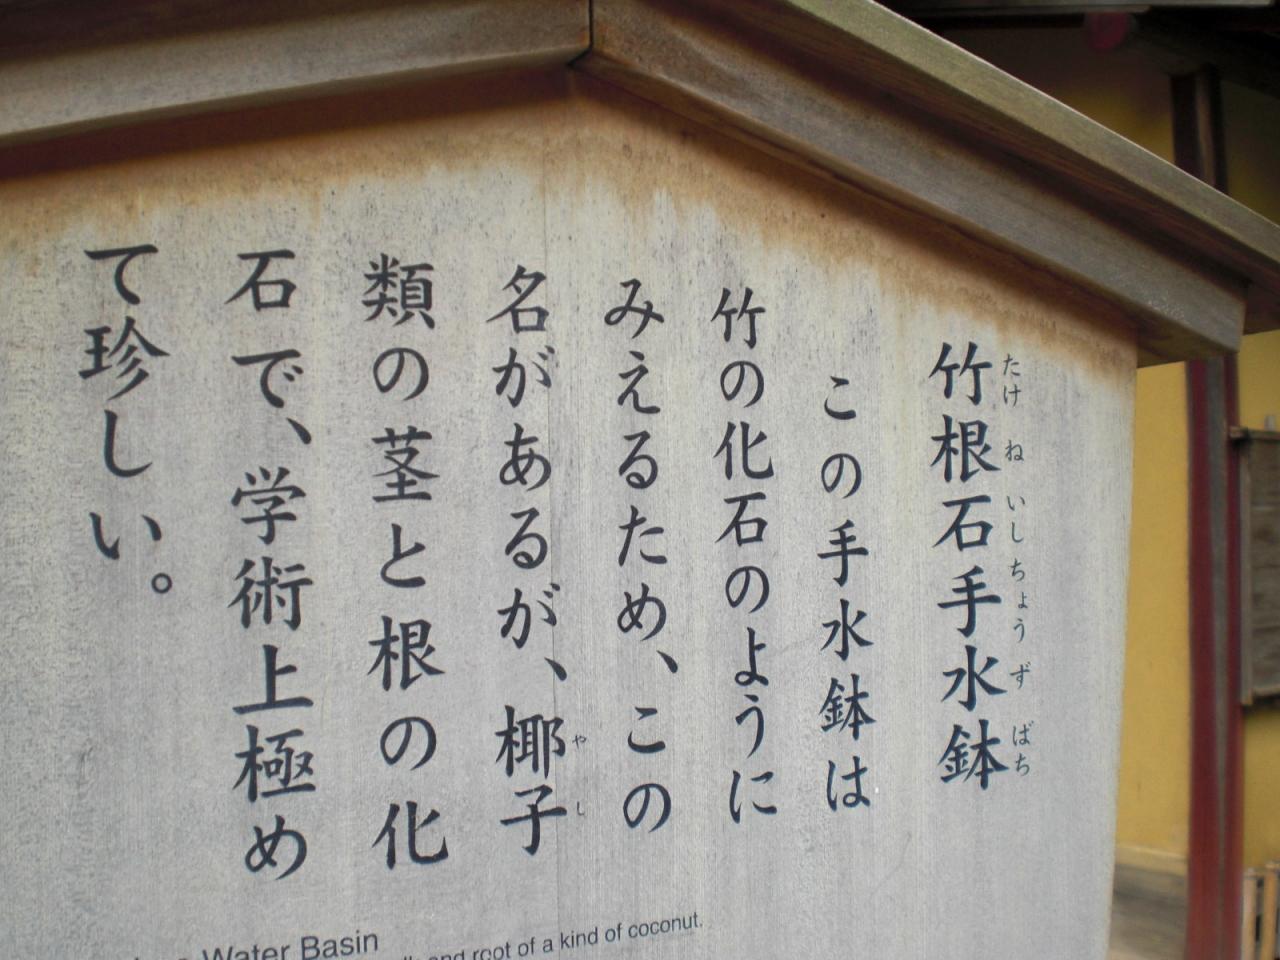 竹根石手水鉢
たけ ね いしちょう ず ばち
この手水鉢は
竹の化石のように
みえるため、この
名があるが、椰子
や し
類の茎と根の化
石で、学術上極め
て珍しい。
Water Basin
and root of a kind of coconut.